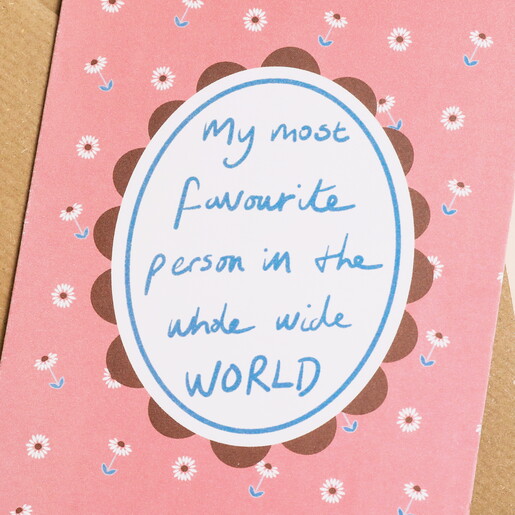 My most
favourite
person in the
whole wide
WORLD